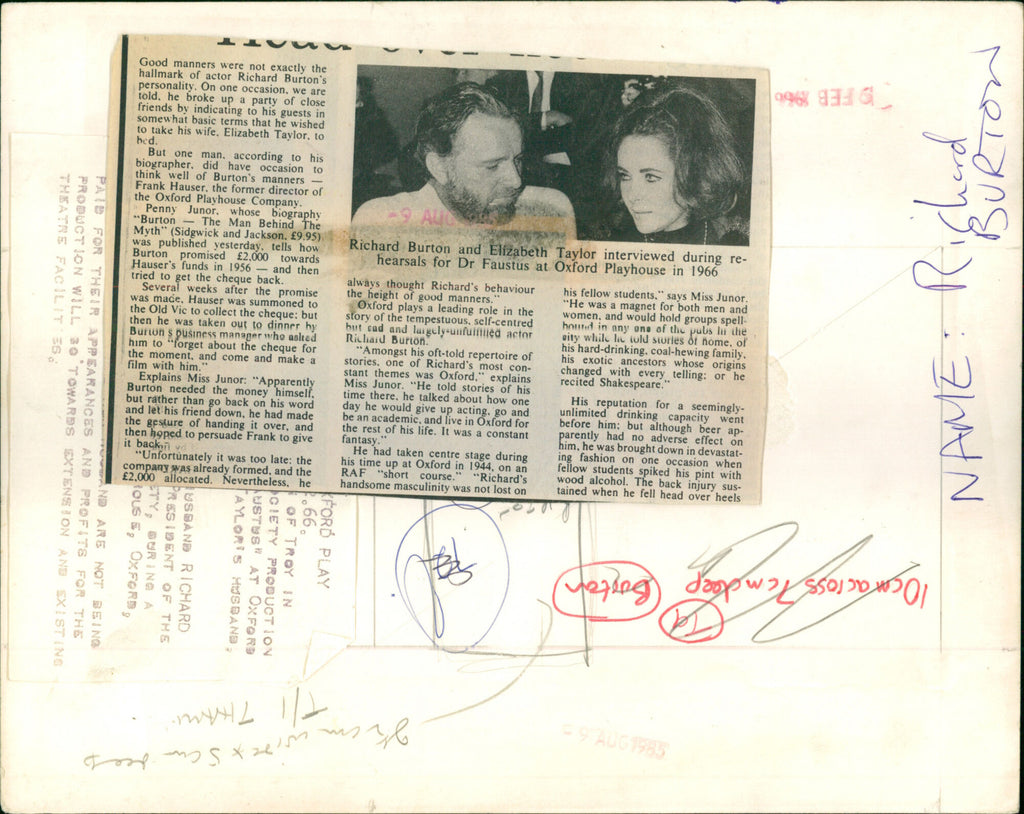 Good manners were not exactly the
hallmark of actor Richard Burton's
personality. On one occasion, we are
told, he broke up a party of close
friends by indicating to his guests in
somewhat basic terms that he wished
to take his wife, Elizabeth Taylor, to
bed.
But one man, according to his
biographer, did have occasion to
think well of Burton's manners —
Frank Hauser, the former director of
the Oxford Playhouse Company.
Penny Junor, whose biography
"Burton — The Man Behind The
Myth" (Sidgwick and Jackson, £9.95)
was published yesterday, tells how
Burton promised £2,000 towards
Hauser's funds in 1956 — and then
tried to get the cheque back.
Several weeks after the promise
was made, Hauser was summoned to
the Old Vic to collect the cheque; but
then he was taken out to dinner by
Burton's business manager who asked
him to "forget about the cheque for
the moment, and come and make a
film with him."
Explains Miss Junor: "Apparently
Burton needed the money himself,
but rather than go back on his word
and let his friend down, he had made
the gesture of handing it over, and
then hoped to persuade Frank to give
it back.
"Unfortunately it was too late: the
company was already formed, and the
£2,000 allocated. Nevertheless, he
Richard Burton and Elizabeth Taylor interviewed during re-
hearsals for Dr Faustus at Oxford Playhouse in 1966
always thought Richard's behaviour
the height of good manners."
Oxford plays a leading role in the
story of the tempestuous, self-centred
but sad and largely-unfulfilled actor
Richard Burton.
"Amongst his oft-told repertoire of
stories, one of Richard's most con-
stant themes was Oxford," explains
Miss Junor. "He told stories of his
time there, he talked about how one
day he would give up acting, go and
be an academic, and live in Oxford for
the rest of his life. It was a constant
fantasy."
He had taken centre stage during
his time up at Oxford in 1944, on an
RAF "short course." "Richard's
handsome masculinity was not lost on
his fellow students," says Miss Junor.
"He was a magnet for both men and
women, and would hold groups spell-
bound in any one of the pubs in the
city while he told stories of home, of
his hard-drinking, coal-hewing family,
his exotic ancestors whose origins
changed with every telling; or he
recited Shakespeare."
His reputation for a seemingly-
unlimited drinking capacity went
before him; but although beer ap-
parently had no adverse effect on
him, he was brought down in devastat-
ing fashion on one occasion when
fellow students spiked his pint with
wood alcohol. The back injury sus-
tained when he fell head over heels
- 9 AUG 1985
FEB 1966
NAME: Richard
BURTON
XFORD PLAY
.66.
OF TROY IN
CIETY PRODUCTION
USTUS" AT OXFORD
AYLOR'S HUSBAND,
USBAND RICHARD
RESIDENT OF THE
TY, DURING A
OUSE, OXFORD,
ND ARE NOT BEING
PAID FOR THEIR APPEARANCES AND PROFITS FOR THE
PRODUCTION WILL GO TOWARDS EXTENSION AND EXISTING
THEATRE FACILITIES.
10cm across 7cm deep
Burton
- 9 AUG 1985